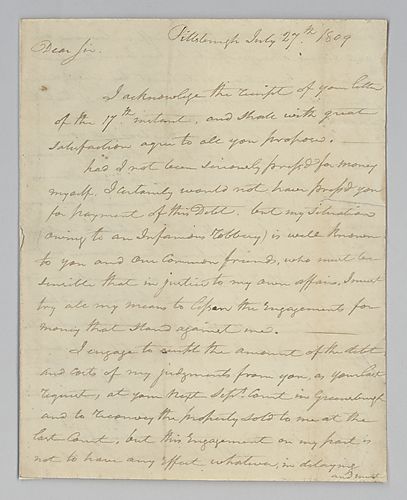 Pittsburgh July 27.th 1809
Dear Sir.
I acknowledge the receipt of your letter
of the 17th instant, and shall with great
satisfaction agree to all you propose.
had I not been sincerely press'd for money
myself. I certainly would not have press'd you
for payment of this Debt. but my Situation
(owing to an Infamous Robbery) is well known
to you and our Common friends, who must be
sensible that in justice to my own affairs, I must
try all my means to the Engagements for
money that stand against me.
I engage to the amount of the debt
and costs of my judgments from you, as your last
request, at your next Sept. Court in Greensburgh
and to reconvey the property sold to me at the
last Court, but this Engagement on my part is
not to have any Effect whatever, in delaying
and must